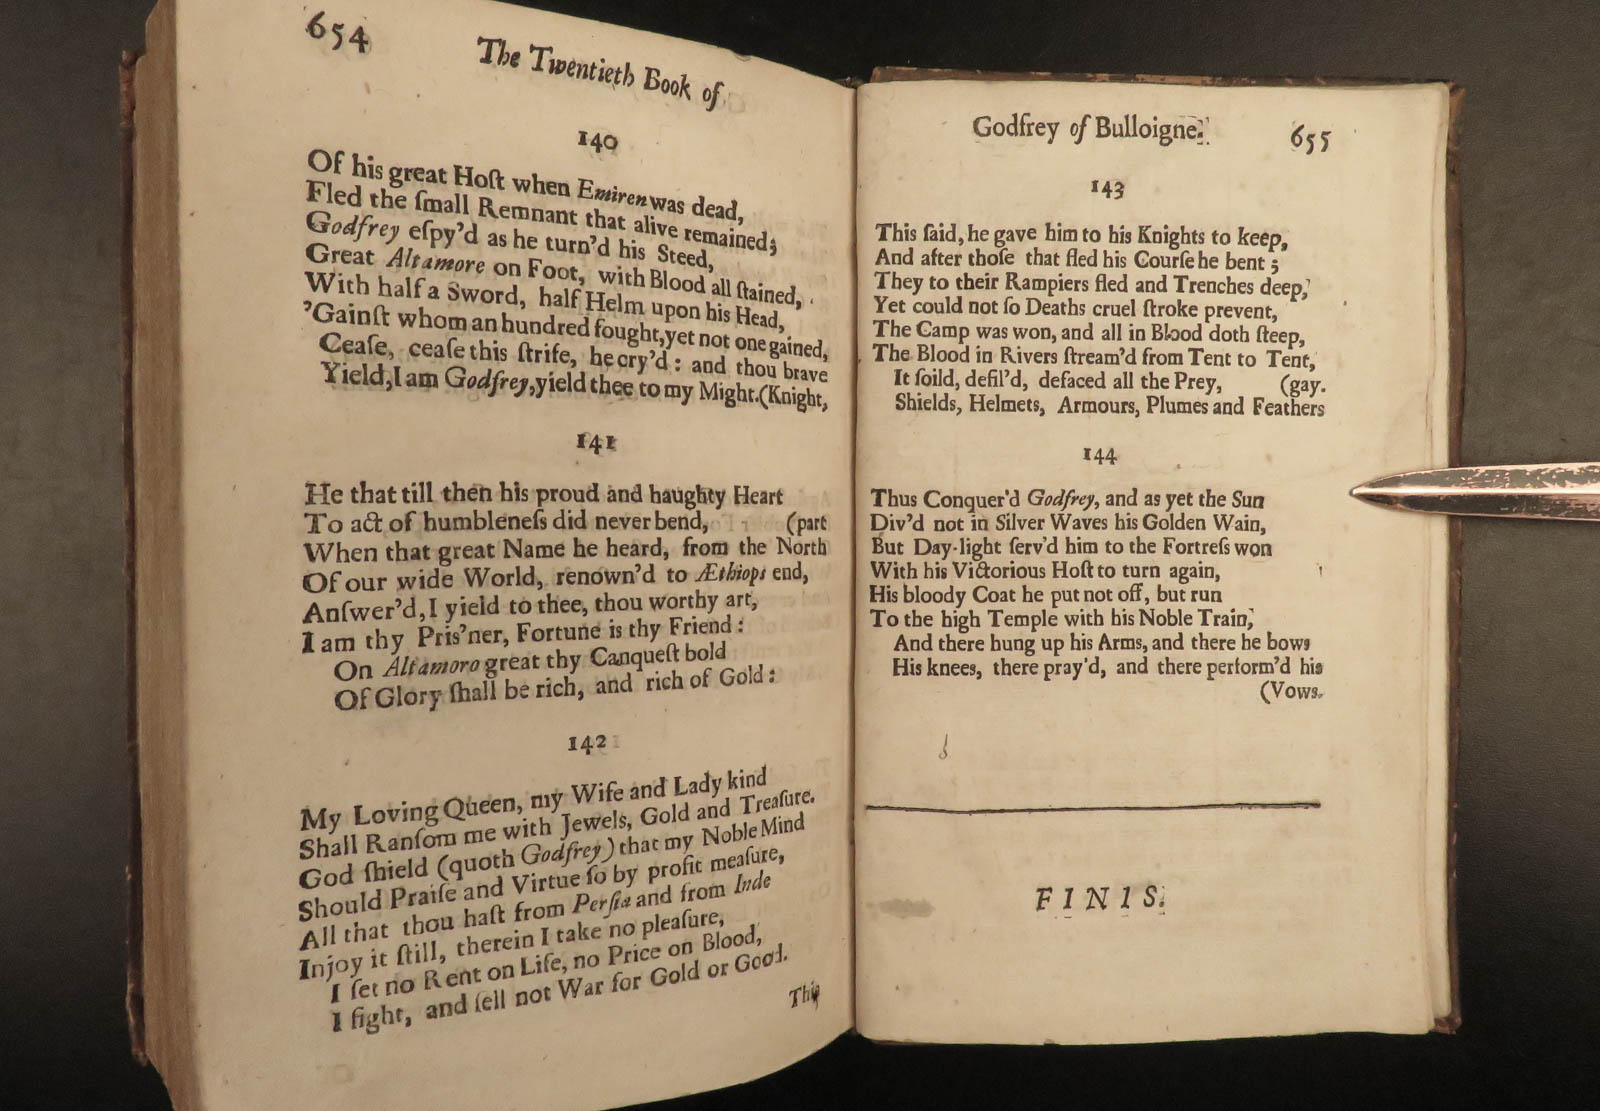 654
The Twentieth Book of
140
Of his great Hoſt when Emiren was dead,
Fled the ſmall Remnant that alive remained;
Godfrey eſpy'd as he turn'd his Steed,
Great Altamore on Foot, with Blood all ſtained,
With half a Sword, half Helm upon his Head,
'Gainſt whom an hundred fought, yet not one gained,
Ceaſe, ceaſe this ſtrife, he cry'd: and thou brave
Yield, I am Godfrey, yield thee to my Might. (Knight,
141
He that till then his proud and haughty Heart
To act of humbleneſs did never bend, (part
When that great Name he heard, from the North
Of our wide World, renown'd to Æthiops end,
Anſwer'd, I yield to thee, thou worthy art,
I am thy Pris'ner, Fortune is thy Friend:
On Altamoro great thy Canqueſt bold
Of Glory ſhall be rich, and rich of Gold:
142
My Loving Queen, my Wife and Lady kind
Shall Ranſom me with Jewels, Gold and Treaſure.
God ſhield (quoth Godfrey) that my Noble Mind
Should Praiſe and Virtue ſo by profit meaſure,
All that thou haſt from Perſia and from Inde
Injoy it ſtill, therein I take no pleaſure,
I ſet no Rent on Life, no Price on Blood,
I fight, and ſell not War for Gold or Good.
This
Godfrey of Bulloigne. 655
143
This ſaid, he gave him to his Knights to keep,
And after thoſe that fled his Courſe he bent;
They to their Rampiers fled and Trenches deep,
Yet could not ſo Deaths cruel ſtroke prevent,
The Camp was won, and all in Blood doth ſteep,
The Blood in Rivers ſtream'd from Tent to Tent,
It ſoild, defil'd, defaced all the Prey, (gay.
Shields, Helmets, Armours, Plumes and Feathers
144
Thus Conquer'd Godfrey, and as yet the Sun
Div'd not in Silver Waves his Golden Wain,
But Day-light ſerv'd him to the Fortreſs won
With his Victorious Hoſt to turn again,
His bloody Coat he put not off, but run
To the high Temple with his Noble Train,
And there hung up his Arms, and there he bows
His knees, there pray'd, and there perform'd his
(Vows.
FINIS.